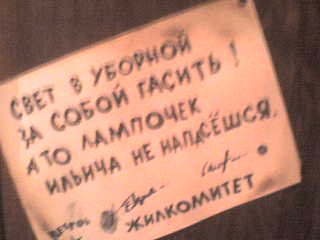 СВЕТ В УБОРНОЙ
ЗА СОБОЙ ГАСИТЬ!
А ТО ЛАМПОЧЕК
ИЛЬИЧА НЕ НАПАСЁШСЯ.
ЖИЛКОМИТЕТ